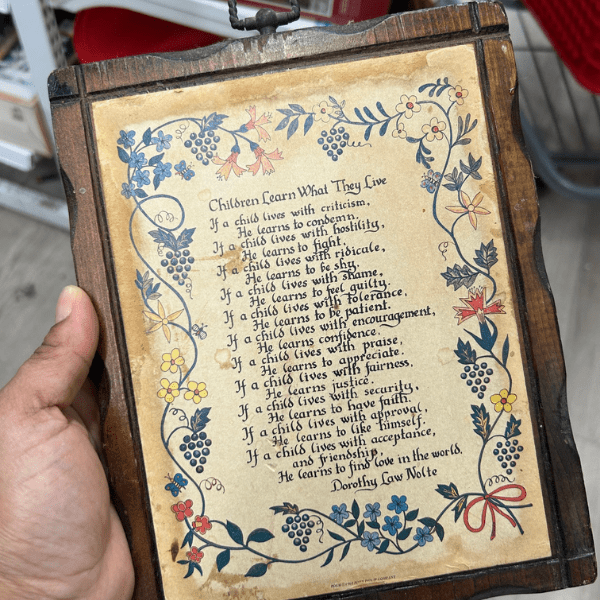 Children Learn What They Live
If a child lives with criticism,
He learns to condemn.
If a child lives with hostility,
He learns to fight,
If a child lives with ridicule,
He learns to be shy,
If a child lives with shame,
He learns to feel guilty.
If a child lives with tolerance,
He learns to be patient.
If a child lives with encouragement,
He learns confidence.
If a child lives with praise,
He learns to appreciate.
If a child lives with fairness,
He learns justice.
If a child lives with security,
He learns to have faith.
If a child lives with approval,
He learns to like himself.
If a child lives with acceptance,
and friendship,
He learns to find love in the world.
Dorothy Law Nolte